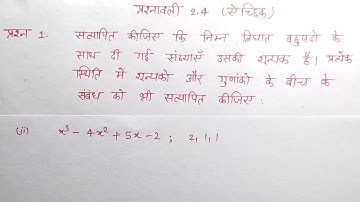 प्रश्नावली 2.4 (ऐच्छिक)
प्रश्न 1. सत्यापित कीजिए कि निम्न त्रिघात बहुपदो के
साथ दी गई संख्याएँ उसकी शून्यक है। प्रत्येक
स्थिति में शून्यको और गुणांको के बीच के
संबंध को भी सत्यापित कीजिए :
(ii) x³ - 4x² + 5x - 2 ; 2, 1, 1